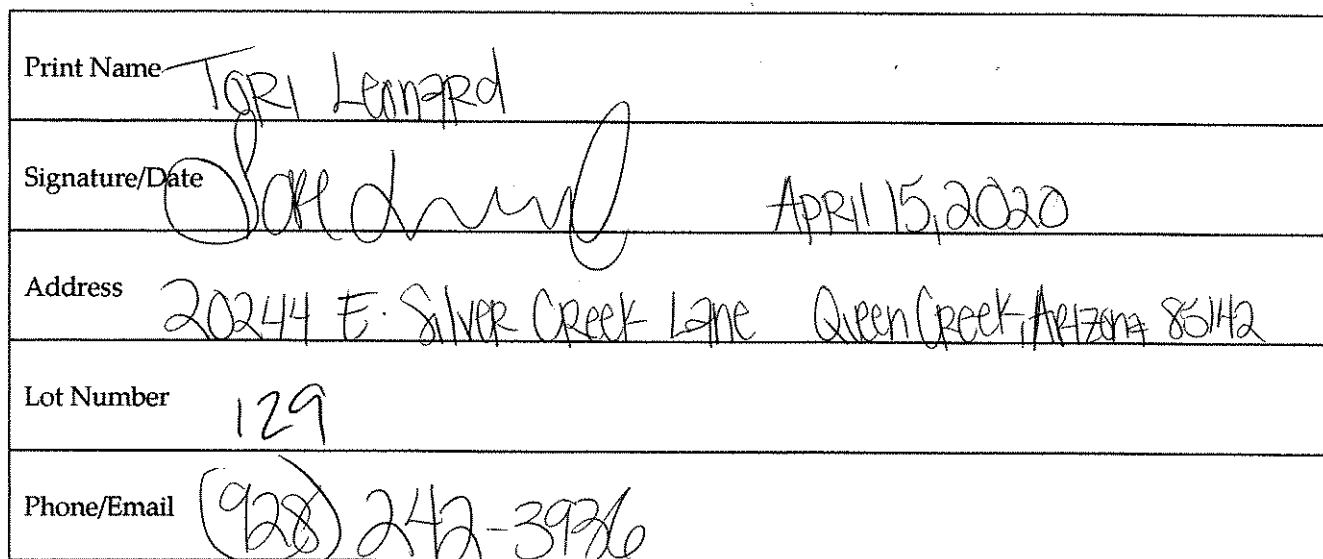 Print Name Tori Leonard
Signature/Date April 15, 2020
Address 20244 E. Silver Creek Lane Queen Creek, Arizona 85142
Lot Number 129
Phone/Email (928) 242-3936